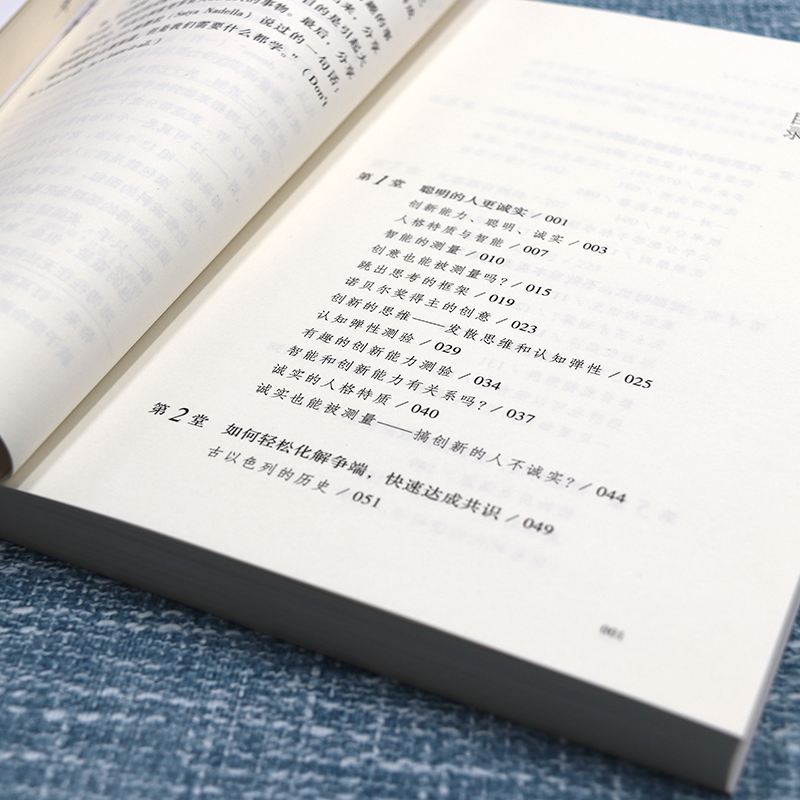 目的是引起大
的事物。最后，分享
Nadella）说过的一句话：
我们需要什么都学。”（Don't
目录
第1堂 聪明的人更诚实 / 001
创新能力、聪明、诚实 / 003
人格特质与智能 / 007
智能的测量 / 010
创意也能被测量吗？/ 015
跳出思考的框架 / 019
诺贝尔奖得主的创意 / 023
创新的思维——发散思维和认知弹性 / 025
认知弹性测验 / 029
有趣的创新能力测验 / 034
智能和创新能力有关系吗？/ 037
诚实的人格特质 / 040
诚实也能被测量——搞创新的人不诚实？/ 044
第2堂 如何轻松化解争端，快速达成共识 / 049
古以色列的历史 / 051
001